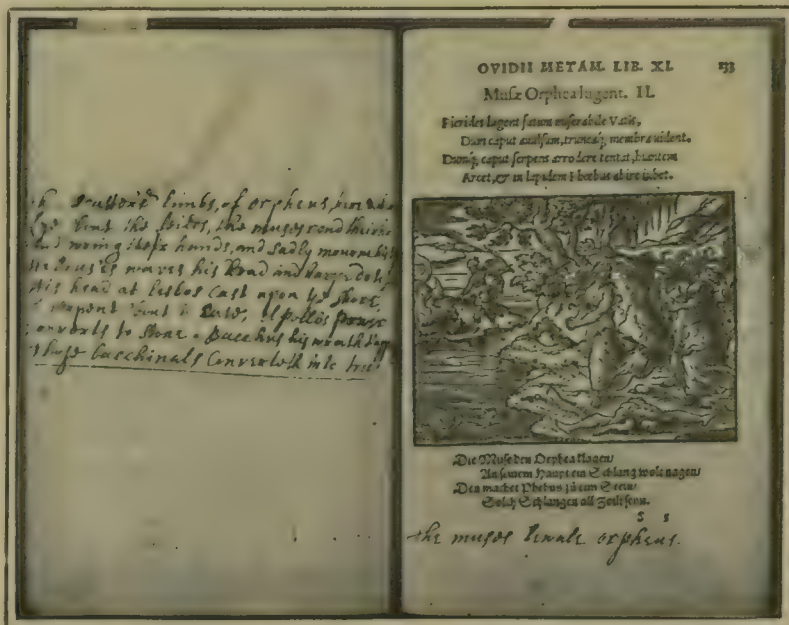 scattored limbs, of orpheus,
the muses rend their
and wring their hands, and sadly mourn his
waves his head and
His head at lesbos cast upon ye shore,
serpent bent to
converts to stone. Bacchus his wrath
those bacchinals Converteth into trees
OVIDII METAM. LIB. XI. 133
Musæ Orphea lugent. II.
Pierides lugent fatum miserabile Vatis,
Dum caput auulsum, truncaq; membra uident.
Dumq; caput serpens arrodere tentat, hiantem
Arcet, & in lapidem Phœbus abire iubet.
Die Muse den Orphea klagen/
An seinem Haupt ein Schlang wolt nagen/
Den machet Phebus zu eim Stein/
Solch Schlangen all Zeit seyn.
S s
the muses bewale orpheus.